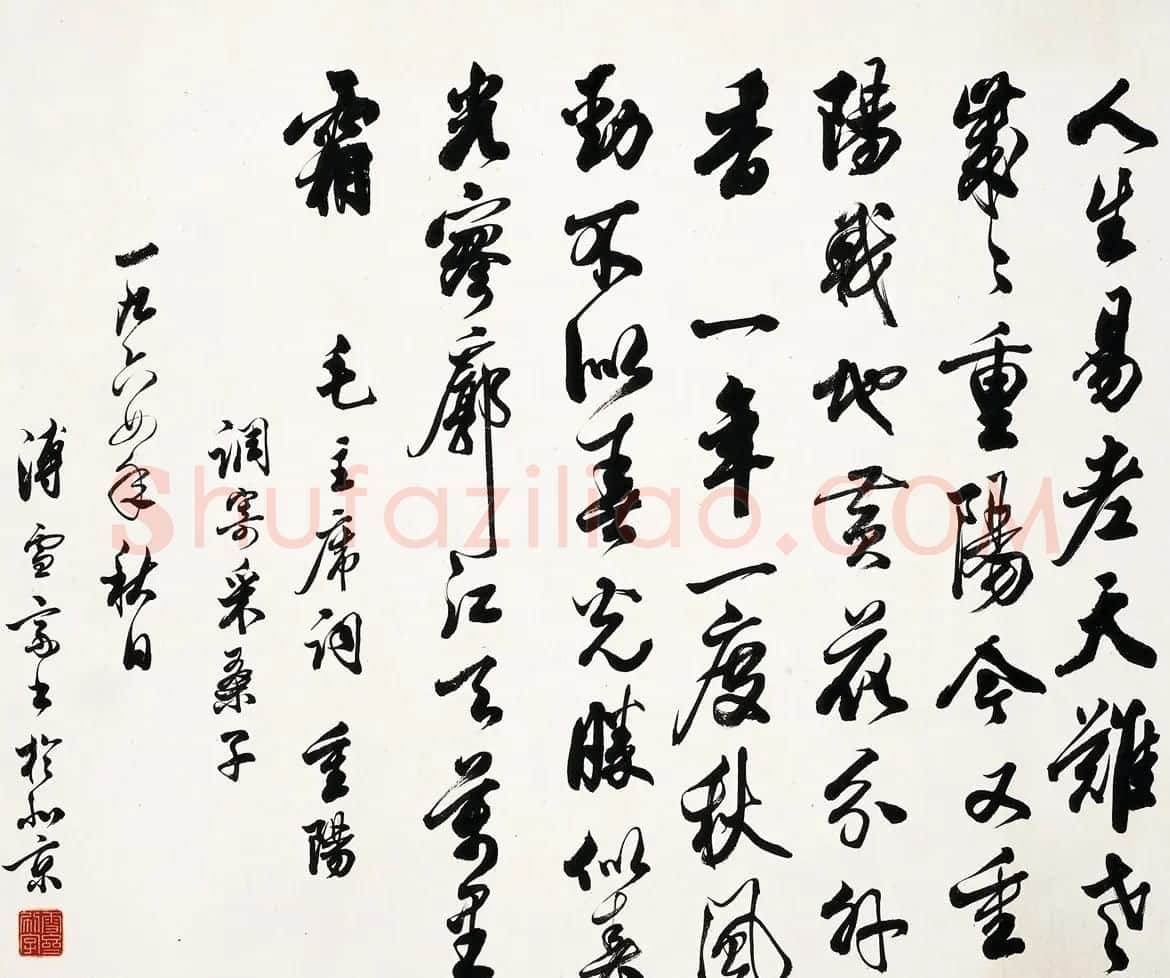 人生易老天難老
歲々重陽今又重
陽戰地黃花分外
香一年一度秋風
勁不似春光勝似春
光寥廓江天萬里
霜 毛主席詞 重陽
調寄采桑子
一九六四年秋日
溥雪齋書於北京
Shufaziliao.COM